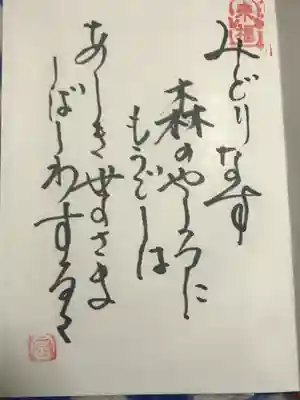 みどりなす
森のやしろに
もうでしは
あしき世のさま
しばしわするる